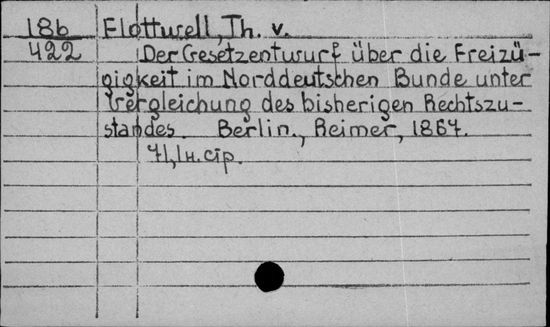 186 Flottwell, Th. v.
422 Der Gesetzentwurf über die Freizü-
gigkeit im Norddeutschen Bunde unter
Vergleichung des bisherigen Rechtszu-
standes. Berlin., Reimer, 1867.
71, 1 н. стр.